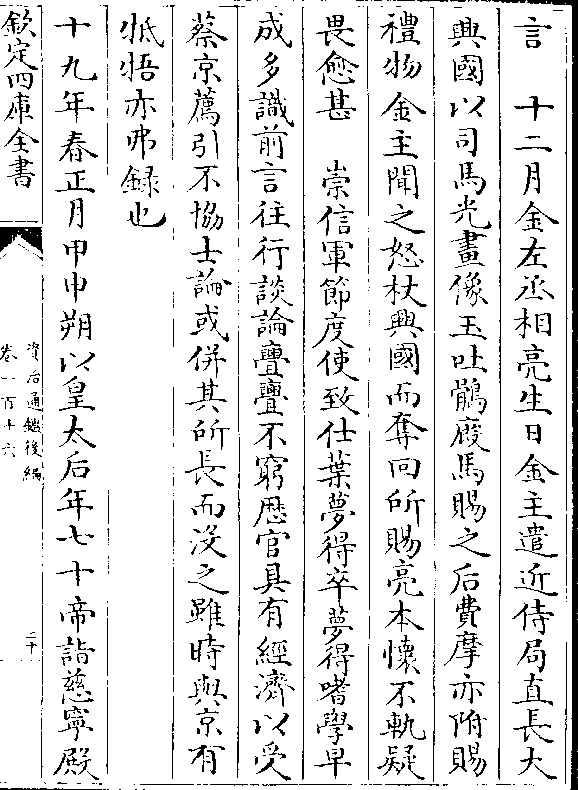 言　十二月金左丞相亮生日金主遣近侍局直長大
興國以司馬光畫像玉吐鶻廐馬賜之后費摩亦附賜
禮物金主聞之怒杖興國而奪回所賜亮本懷不軌疑
畏愈甚　崇信軍節度使致仕葉夢得卒夢得嗜學早
成多識前言往行談論亹亹不窮歴官具有經濟以受
蔡京薦引不協士論或併其所長而没之雖時與京有
牴牾亦弗録也
十九年春正月甲申朔以皇太后年七十帝詣慈寧殿
欽定四庫全書
資治通鑑後編
卷一百十六
二十